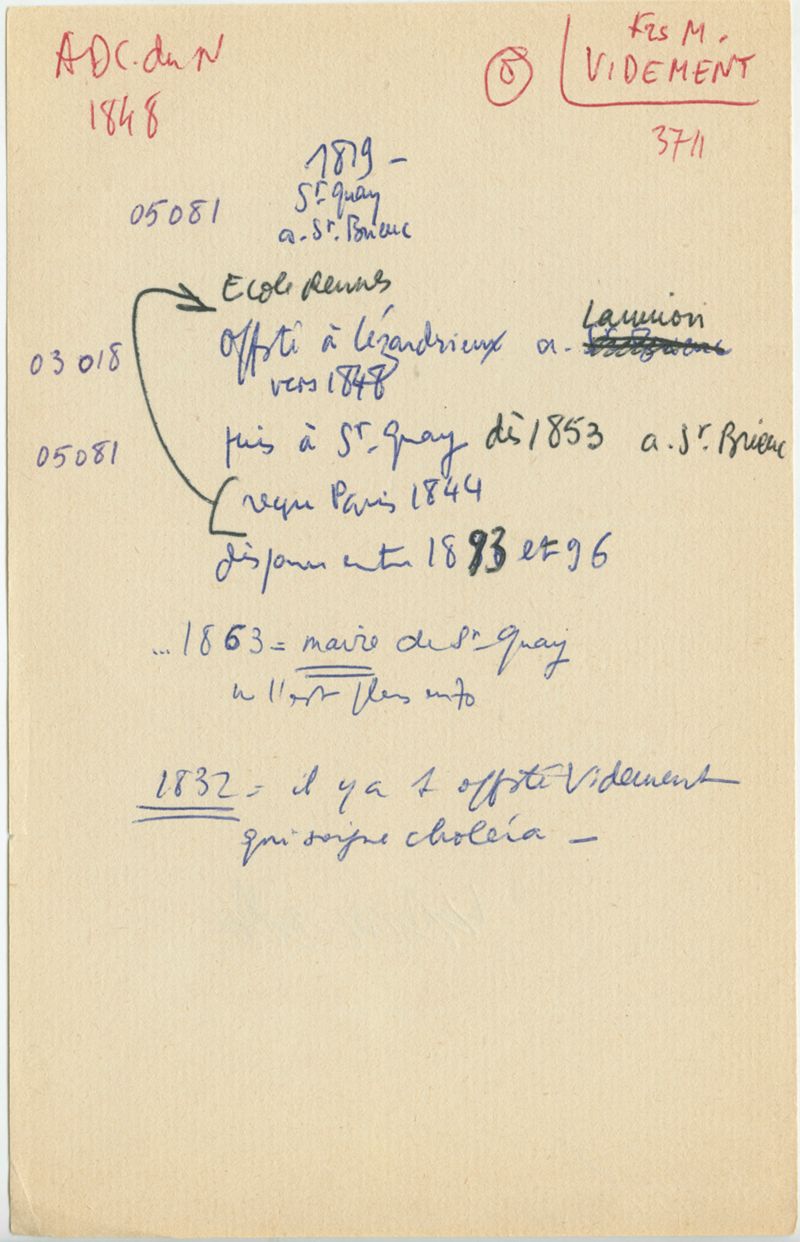 A D C. du N
1848
Frs M.
VIDEMENT
3711
1819 –
St. Quay
05081
a. St. Brieuc
Ecole Rennes
Lannion
03 018
Offsté à Lézardrieux a.
vers 1848
05081
puis à St. Quay dès 1853 a. St. Brieuc
reçu Paris 1844
disparu entre 1893 et 96
... 1863 = maire de St Quay
n l'est plus en 70
1832 = il y a 1 offsté Videment
qui soigne choléra –